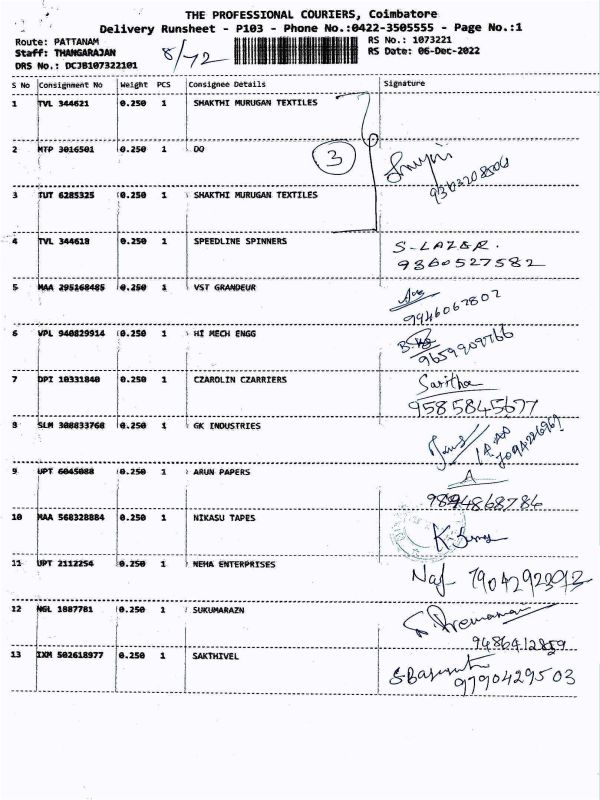 THE PROFESSIONAL COURIERS, Coimbatore
Delivery Runsheet - P103 - Phone No.:0422-3505555 - Page No.:1
Route: PATTANAM
RS No.: 1073221
Staff: THANGARAJAN
8/72
RS Date: 06-Dec-2022
DRS No.: DCJB107322101
S No Consignment No Weight PCS Consignee Details Signature
1 TVL 344621 0.250 1 SHAKTHI MURUGAN TEXTILES
2 MTP 3016501 0.250 1 DO
3
3 TUT 6285325 0.250 1 SHAKTHI MURUGAN TEXTILES
4 TVL 344618 0.250 1 SPEEDLINE SPINNERS S-LAZER.
9360527582
5 MAA 295168485 0.250 1 VST GRANDEUR
9946067802
6 VPL 940829914 0.250 1 HI MECH ENGG
9659909766
7 DPI 10331840 0.250 1 CZAROLIN CZARRIERS Saritha
9585845677
8 SLM 308833768 0.250 1 GK INDUSTRIES
9 UPT 6045088 0.250 1 ARUN PAPERS A
10 MAA 568328884 0.250 1 NIKASU TAPES
11 UPT 2112254 0.250 1 NEHA ENTERPRISES
12 NGL 1887781 0.250 1 SUKUMARAZN
13 IXM 502618977 0.250 1 SAKTHIVEL
9790429503